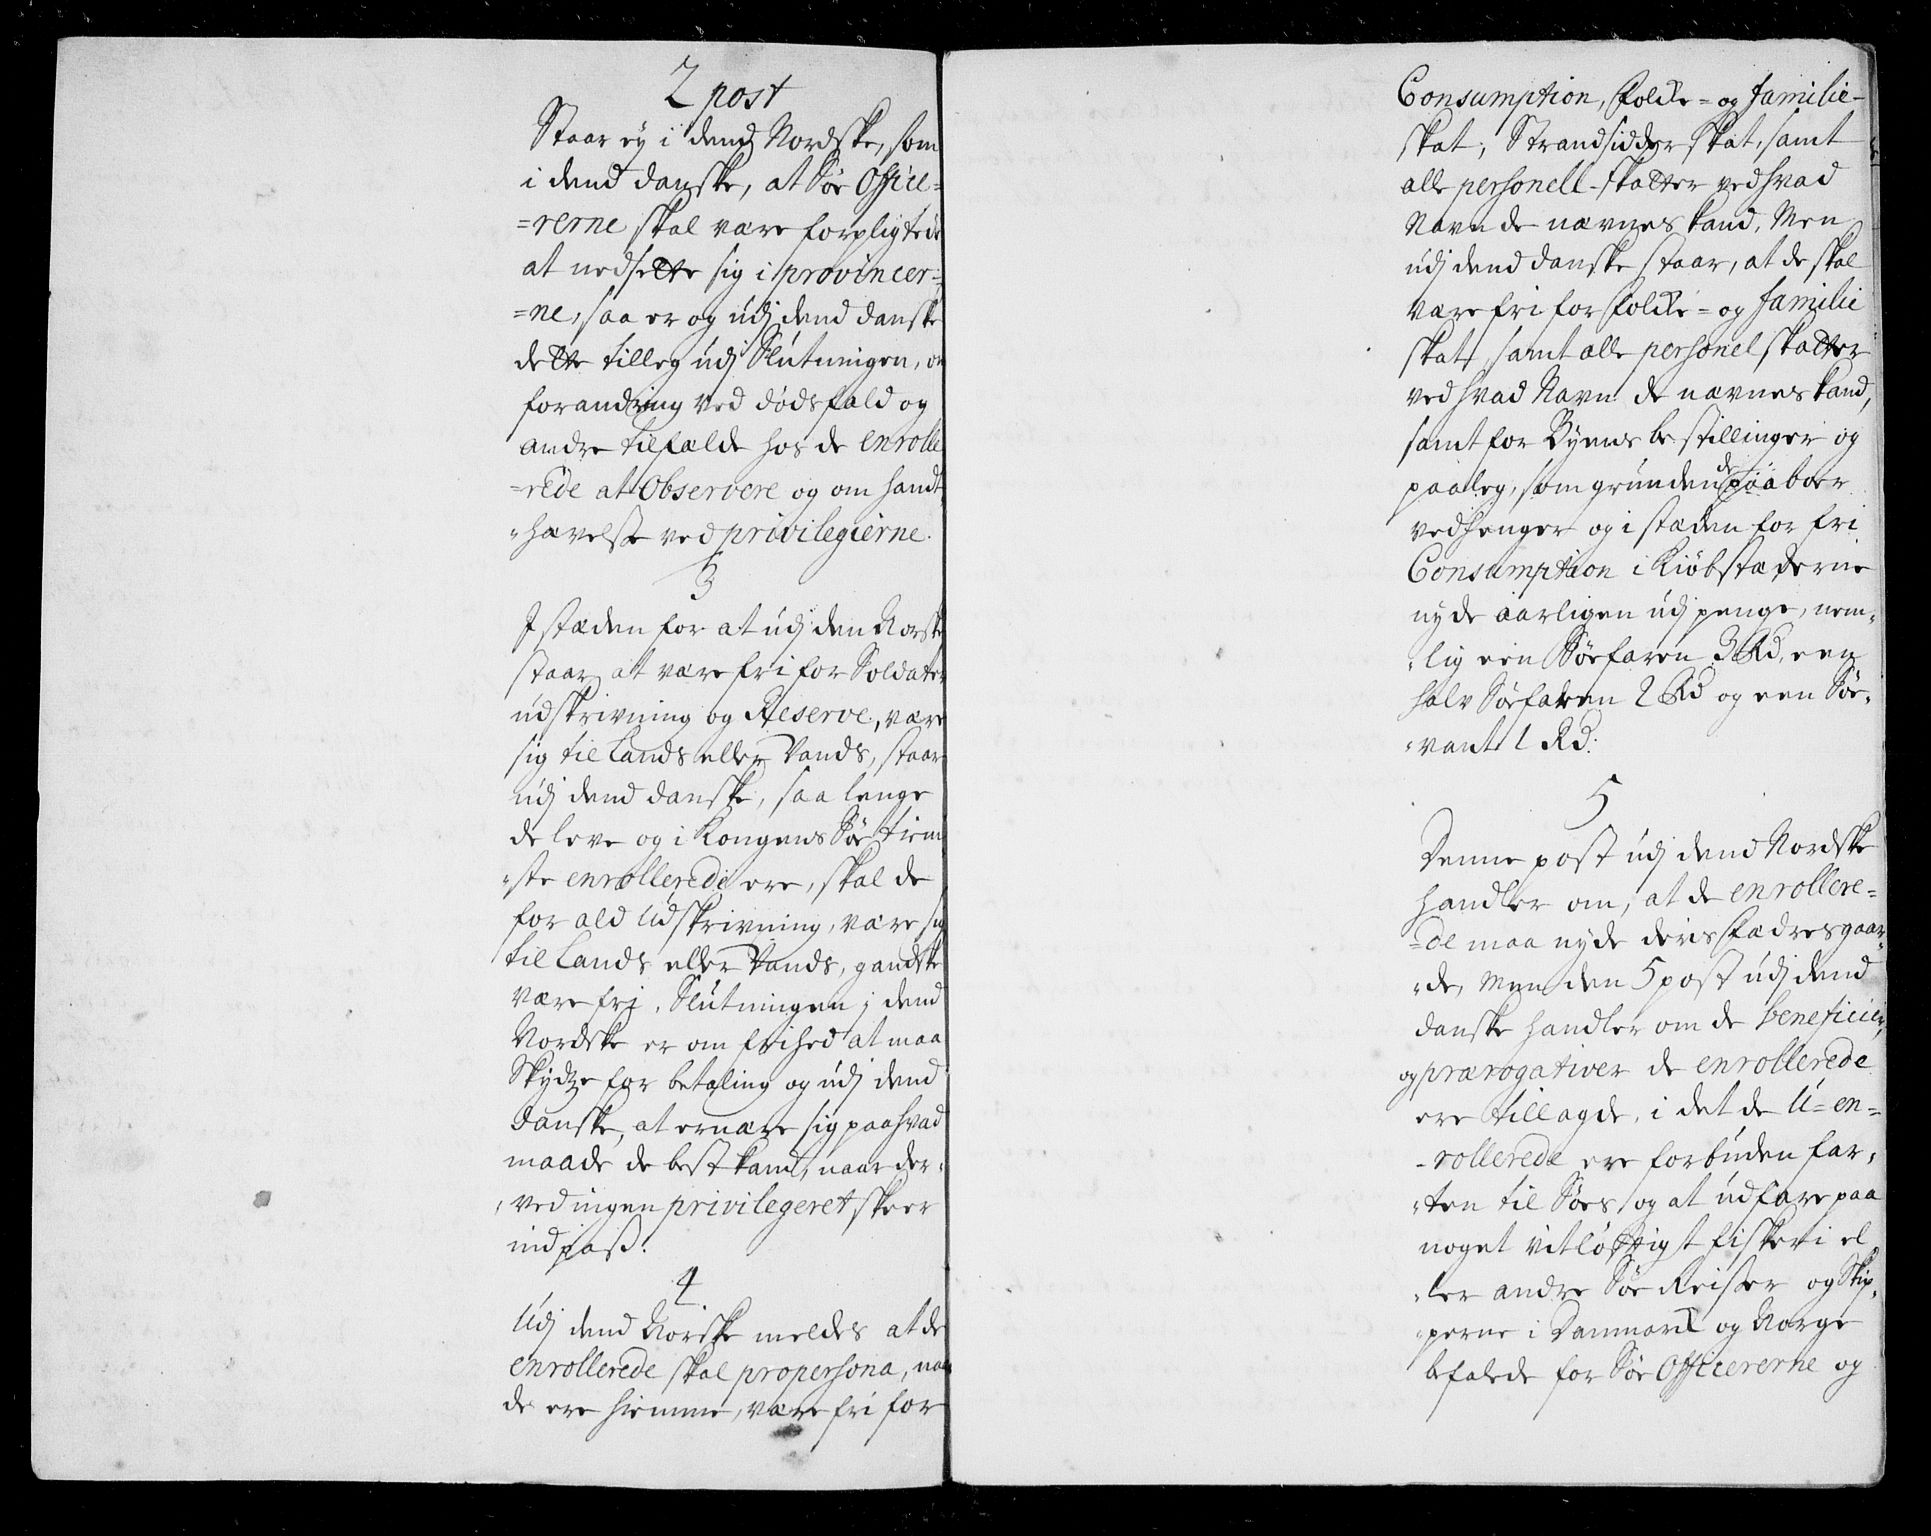 2 post
Staar ey i dend Nordske, som
i dend danske, at Søe Office=
=rerne skal være forpligtede
at nedsette sig i provincer=
=ne, saa er og udj dend danske
dette tilleg udj Slutningen, om
forandring ved dødsfald og
andre tilfælde hos de enrolle
=rede at Observere og om handt
"hævelse ved privilegierne.
3
J stæden for at udj den Norske
staar, at være fri for Soldater
udskrivning og Reserve, være
sig til Lands eller Vands, staar
udj dend danske, saa lenge
de leve og i Kongens Søe tiene
"ste enrollerede ere, skal de
for ald Udskrivning, være sig
til Lands eller Vands, gandske
være frj. Slutningen j dend
Nordske er om frihed at maa
Skydze for betaling og udj dend
danske, at ernære sig paa hvad
maade de best kand, naar der,
"ved ingen privilegeret skeer
indpass.
4
Udj dend Norske meldes at de
enrollerede skal propersona, naar
de ere hiemme, være fri for
Consumption, Folke= og familie-
skat, Strandsidder skat, samt
alle personell-skatter ved hvad
Navn de nævnes kand, Men
udj dend danske staar, at de skal
være fri for Folke= og familie
skat, samt alle personel skatter
ved hvad Navn de nævnes kand,
samt for Byens bestillinger og
paaleg, som grunden de paaboer
vedhenger og i stæden for fri
Consumption i Kiøbstæderne
nyde aarligen udj penge, nem,
"lig een Søefaren 3 Rd, een
halv Søefaren 2 Rd og een Søe,
"vant 1 Rd:
5
Denne post udj dend Nordske
handler om, at de enrollere=
=de maa nyde deris Fædresgaar,
"de, Men den 5 post udj dend
danske handler om de beneficier,
og prærogativer de enrollerede
ere tillagde, i det de U=en=
-rollerede ere forbuden far,
"ten til Søes og at udfare paa
noget vitløftigt fiskeri el
"ler andre Søe Reiser og Skip,
"perne i Danmark og Norge
befalede for Søe Officererne og